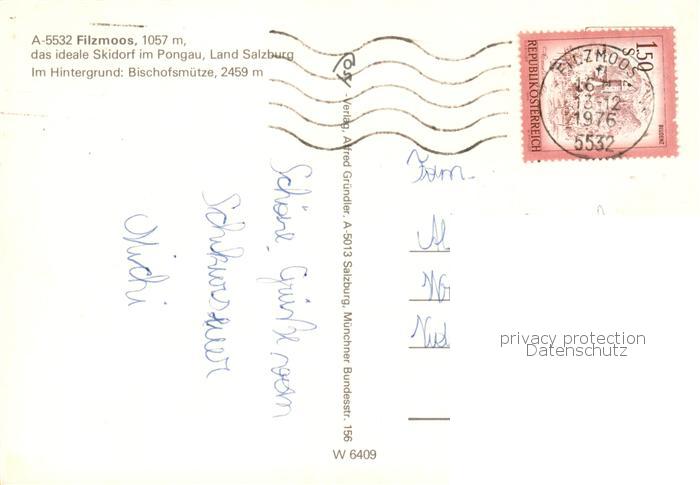 A-5532 Filzmoos, 1057 m,
das ideale Skidorf im Pongau, Land Salzburg
Im Hintergrund: Bischofsmütze, 2459 m
Verlag, Alfred Gründler, A-5013 Salzburg, Münchner Bundesstr. 156
W 6409
Schöne Grüße vom
Michi
Fam.
1.50
S
REPUBLIK ÖSTERREICH
BLUDENZ
FILZMOOS
13-12
1976
5532
privacy protection
Datenschutz